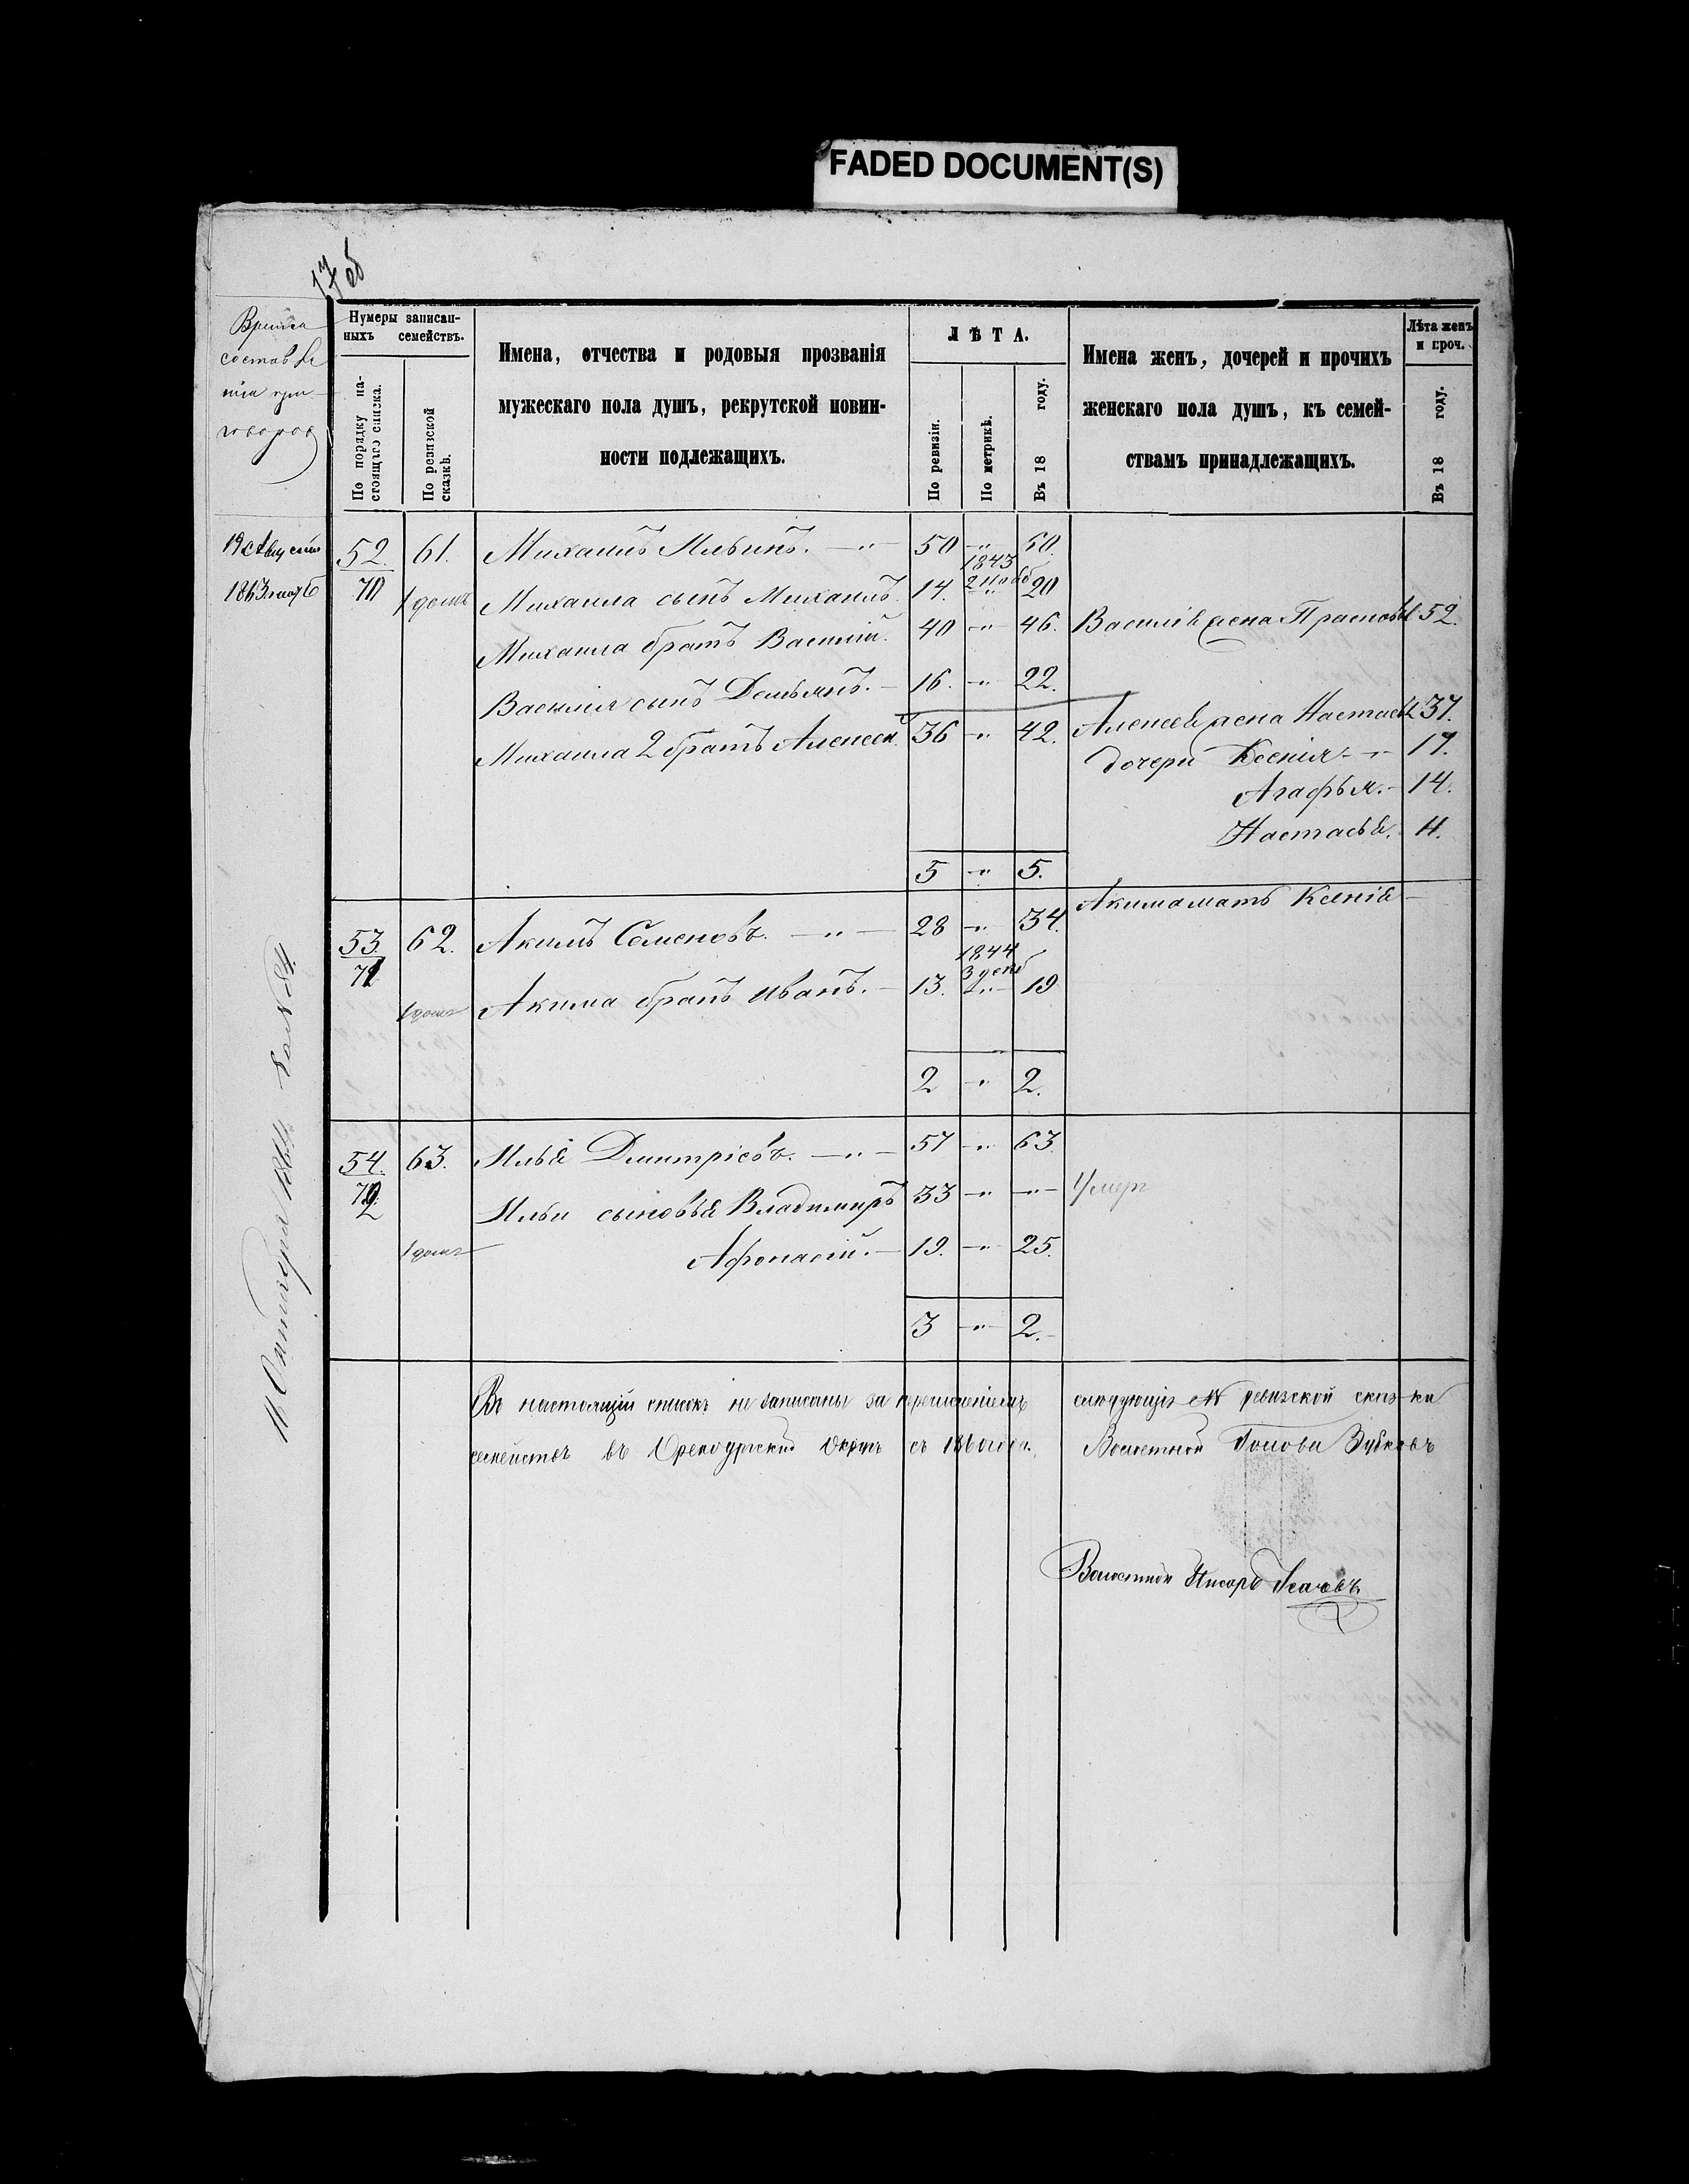 FADED DOCUMENT(S)
17 об
Время
составле
нія при
говоров
Нумеры записан-
ныхъ семействъ.
По порядку на-
стоящаго списка.
По ревизской
сказкѣ.
Имена, отчества и родовыя прозванія
мужескаго пола душъ, рекрутской повин-
ности подлежащихъ.
ЛѢТА.
По ревизіи.
По метрикѣ.
Въ 18 году.
Имена женъ, дочерей и прочихъ
женскаго пола душъ, къ семей-
ствамъ принадлежащихъ.
Лѣта женъ
и проч.
Въ 18 году.
19 Августа
1863 года
52. 61. Михаилъ Ильинъ. —"— 50 —"— 50.
70 1 домъ Михаила сынъ Михаилъ. 14. 1843 2 нояб 20
Михаила братъ Василій. 40 —"— 46. Василія жена Прасковья 52.
Василія сынъ Демьянъ. — 16. —"— 22.
Михаила 2 братъ Алексей. 36 —"— 42. Алексея жена Настасья 37.
дочери Ксенія —"— 17.
Агафья. — 14.
Настасья. 11.
5 —"— 5.
53. 62. Акимъ Семеновъ. —"— 28 —"— 34. Акима мать Ксенія —
71 1 домъ Акима братъ Иванъ. — 13. 1844 3 декб 19
2 —"— 2.
54. 63. Илья Дмитріевъ. —"— 57 —"— 63
72 Ильи сыновья Владимиръ 33 —"— —"— Умеръ
1 домъ Афонасій. — 19. —"— 25.
3 —"— 2.
Въ настоящій списокъ не записаны за перемещеніемъ следующіе №№ ревизской сказки
семействъ въ Оренбургский Округъ съ 1860 года. Волостной Голова Зубковъ
Волостной Писарь
16 Октября 1864 года № 84.